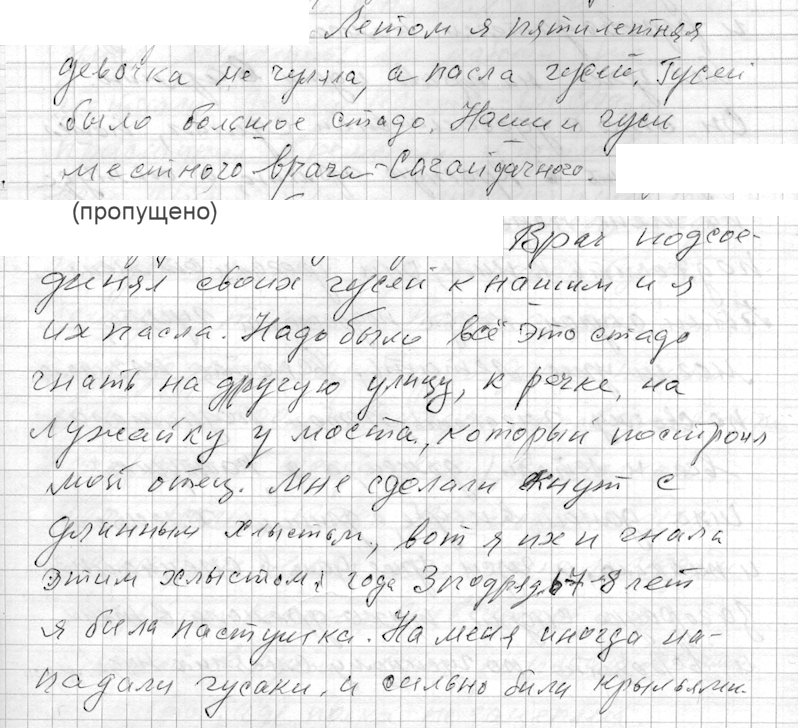 Летом я пятилетняя
девочка не гуляла, а пасла гусей. Гусей
было большое стадо. Наши и гуси
местного врача - Сагайдачного.
(пропущено)
Врач подсое-
динял своих гусей к нашим и я
их пасла. Надо было всё это стадо
гнать на другую улицу, к речке, на
лужайку у моста, который построил
мой отец. Мне сделали кнут с
длинным хлыстом, вот я их и гнала
этим хлыстом, года 3 подряд. 7-8 лет
я была пастушка. На меня иногда на-
падали гусаки, и сильно били крыльями.